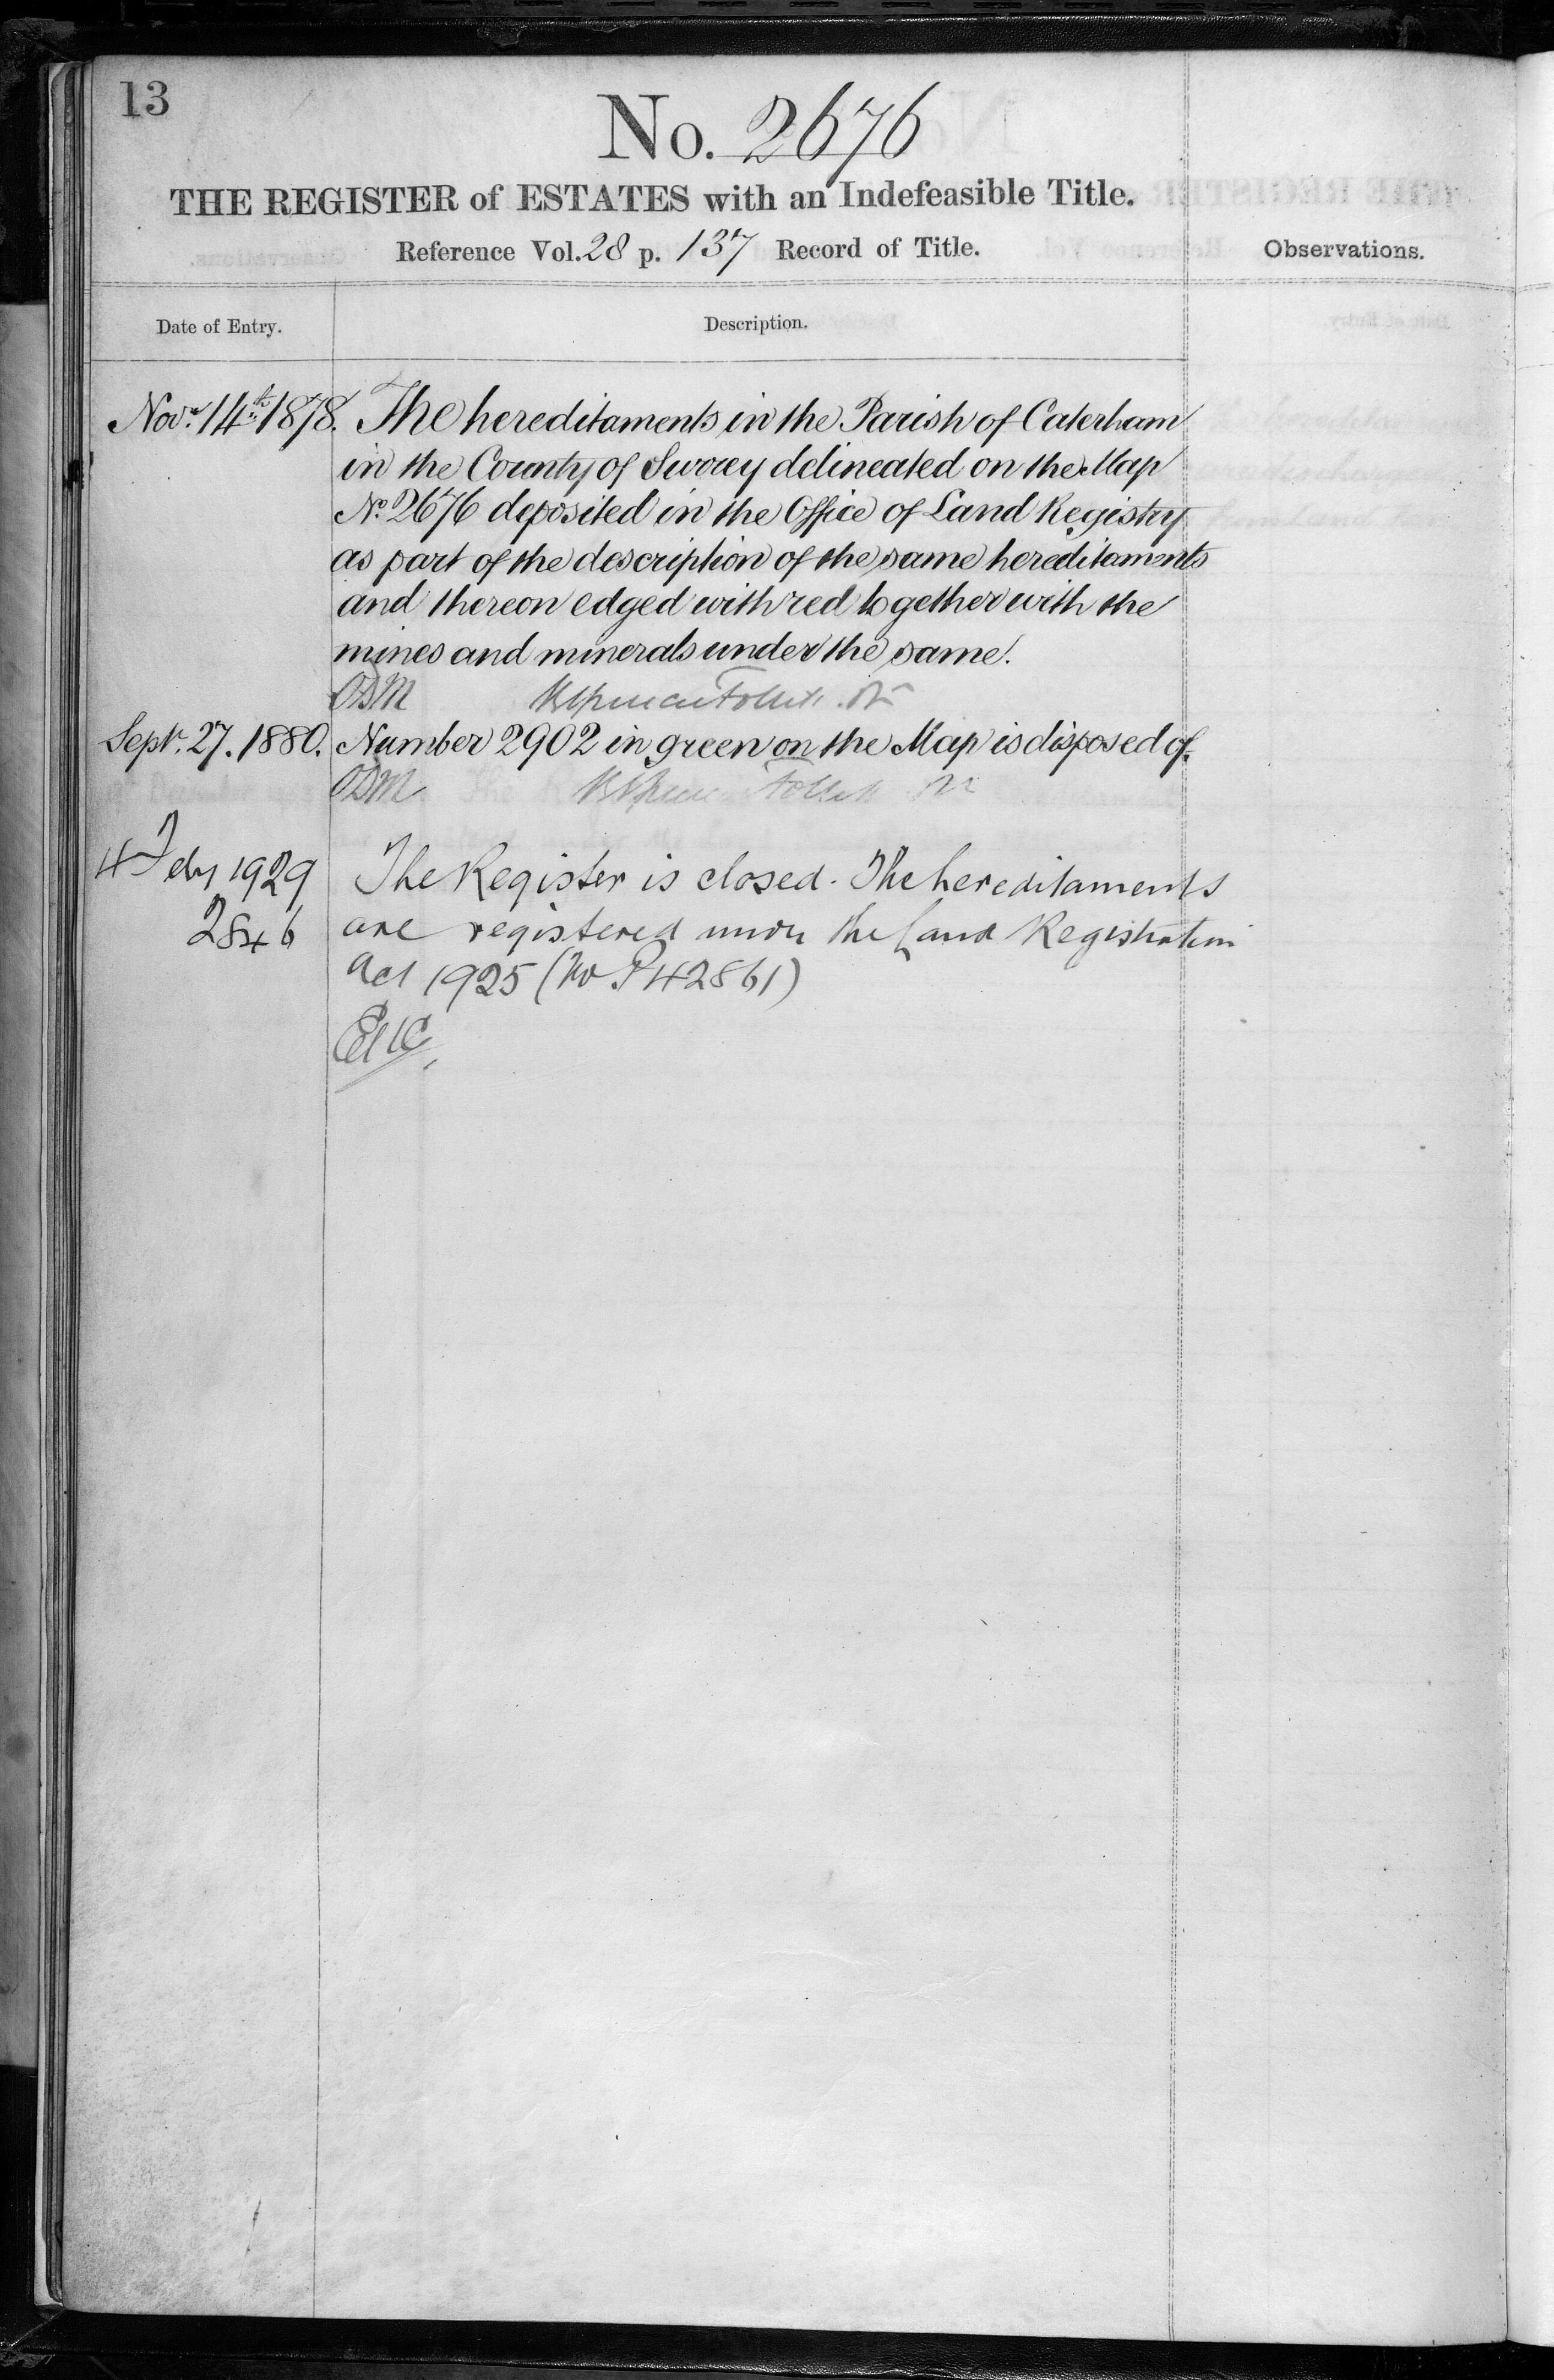 13
No. 2676
THE REGISTER of ESTATES with an Indefeasible Title.
Reference Vol. 28 p. 137 Record of Title.
Observations.
Date of Entry.
Description.
Novr. 14th 1878. The hereditaments in the Parish of Caterham
in the County of Surrey delineated on the Map
No. 2676 deposited in the Office of Land Registry
as part of the description of the same hereditaments
and thereon edged with red together with the
mines and minerals under the same.
Sept. 27. 1880. Number 2902 in green on the Map is disposed of.
4 Feby 1929 The Register is closed. The hereditaments
2846 are registered under the Land Registration
Act 1925 (No. P42861)